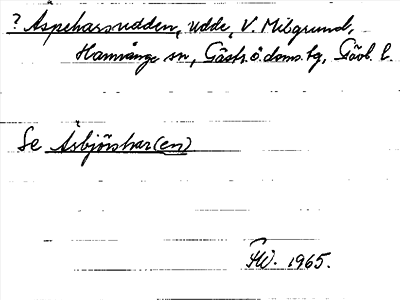 ? Aspeharsudden, udde, V. Milgrund,
Hamrånge sn, Gästr. ö. doms. tg, Gävl. l.
Se Asbjörshar(en)
HW. 1965.